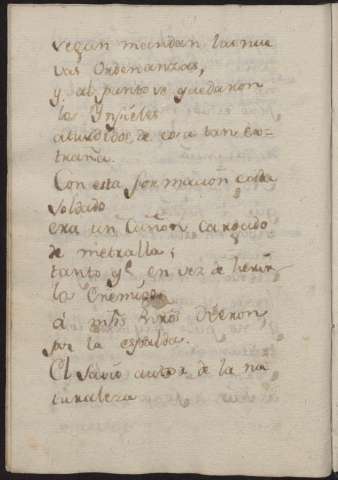 vegan mandan las nue
vas Ordenanzas,
y al punto se quedaron
los Ynfieles
aturdidos de cosa tan ex-
traña.
Con esta formacion cada
soldado
era un Cañon cargado
de metralla;
tanto qe. en vez de herir
los Enemigos
á mȟs dieron,
por la espalda.
El savio autor de la na
turaleza